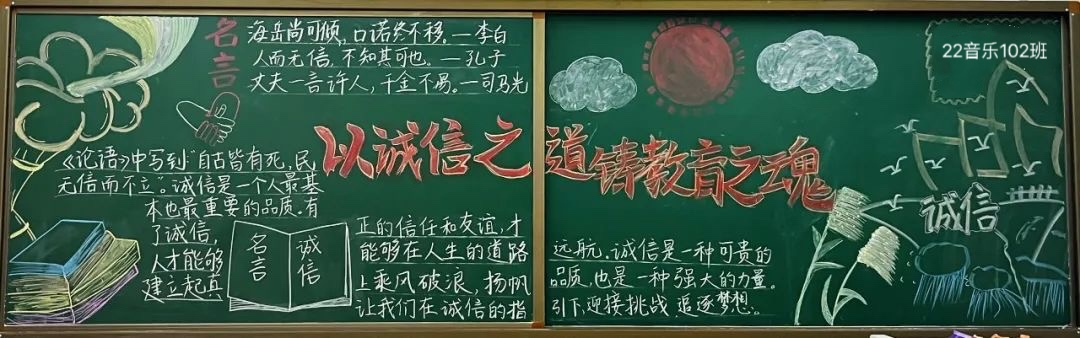 名言
海岳尚可倾,口诺终不移。—李白
人而无信,不知其可也。—孔子
丈夫一言许人,千金不易。—司马光
以诚信之道铸教育之魂
22音乐102班
《论语》中写到“自古皆有死,民
无信而不立”。诚信是一个人最基
本也最重要的品质。有
了诚信,
人才能够
建立起真
名言
诚信
正的信任和友谊,才
能够在人生的道路
上乘风破浪,扬帆
让我们在诚信的指
远航,诚信是一种可贵的
品质,也是一种强大的力量。
引下,迎接挑战,追逐梦想。
诚信